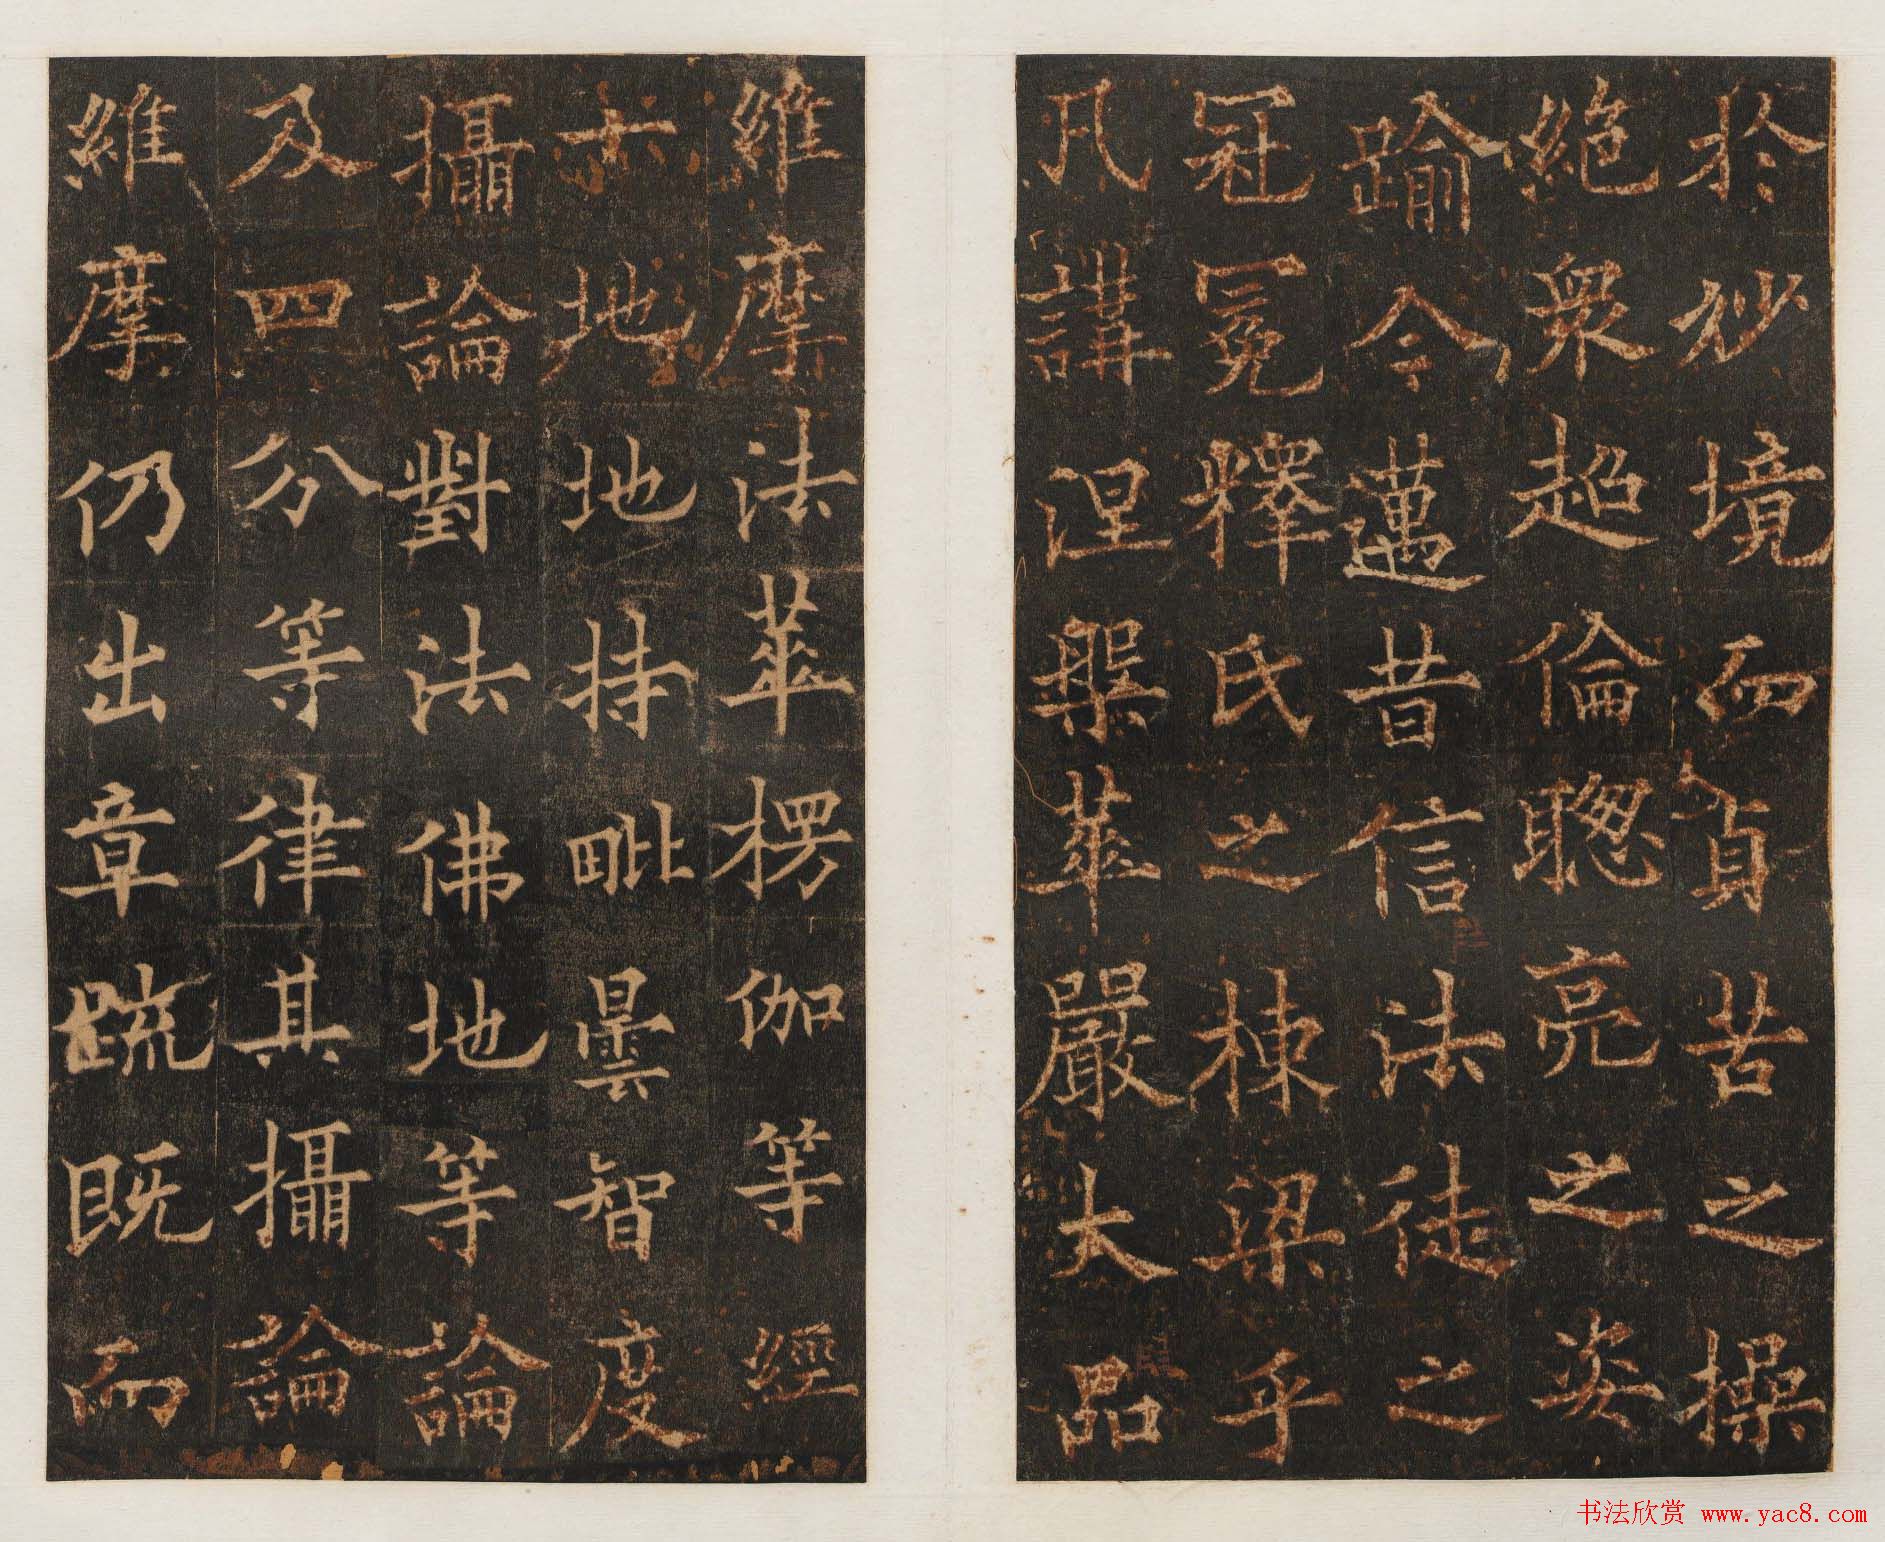 於妙境而貞苦之操
絕衆超倫聰亮之姿
踰今邁昔信法徒之
冠冕釋氏之棟梁乎
凡講涅槃華嚴大品
維摩法華楞伽等經
十地地持毗曇智度
攝論對法佛地等論
及四分等律其攝論
維摩仍出章疏既而
书法欣赏 www.yac8.com